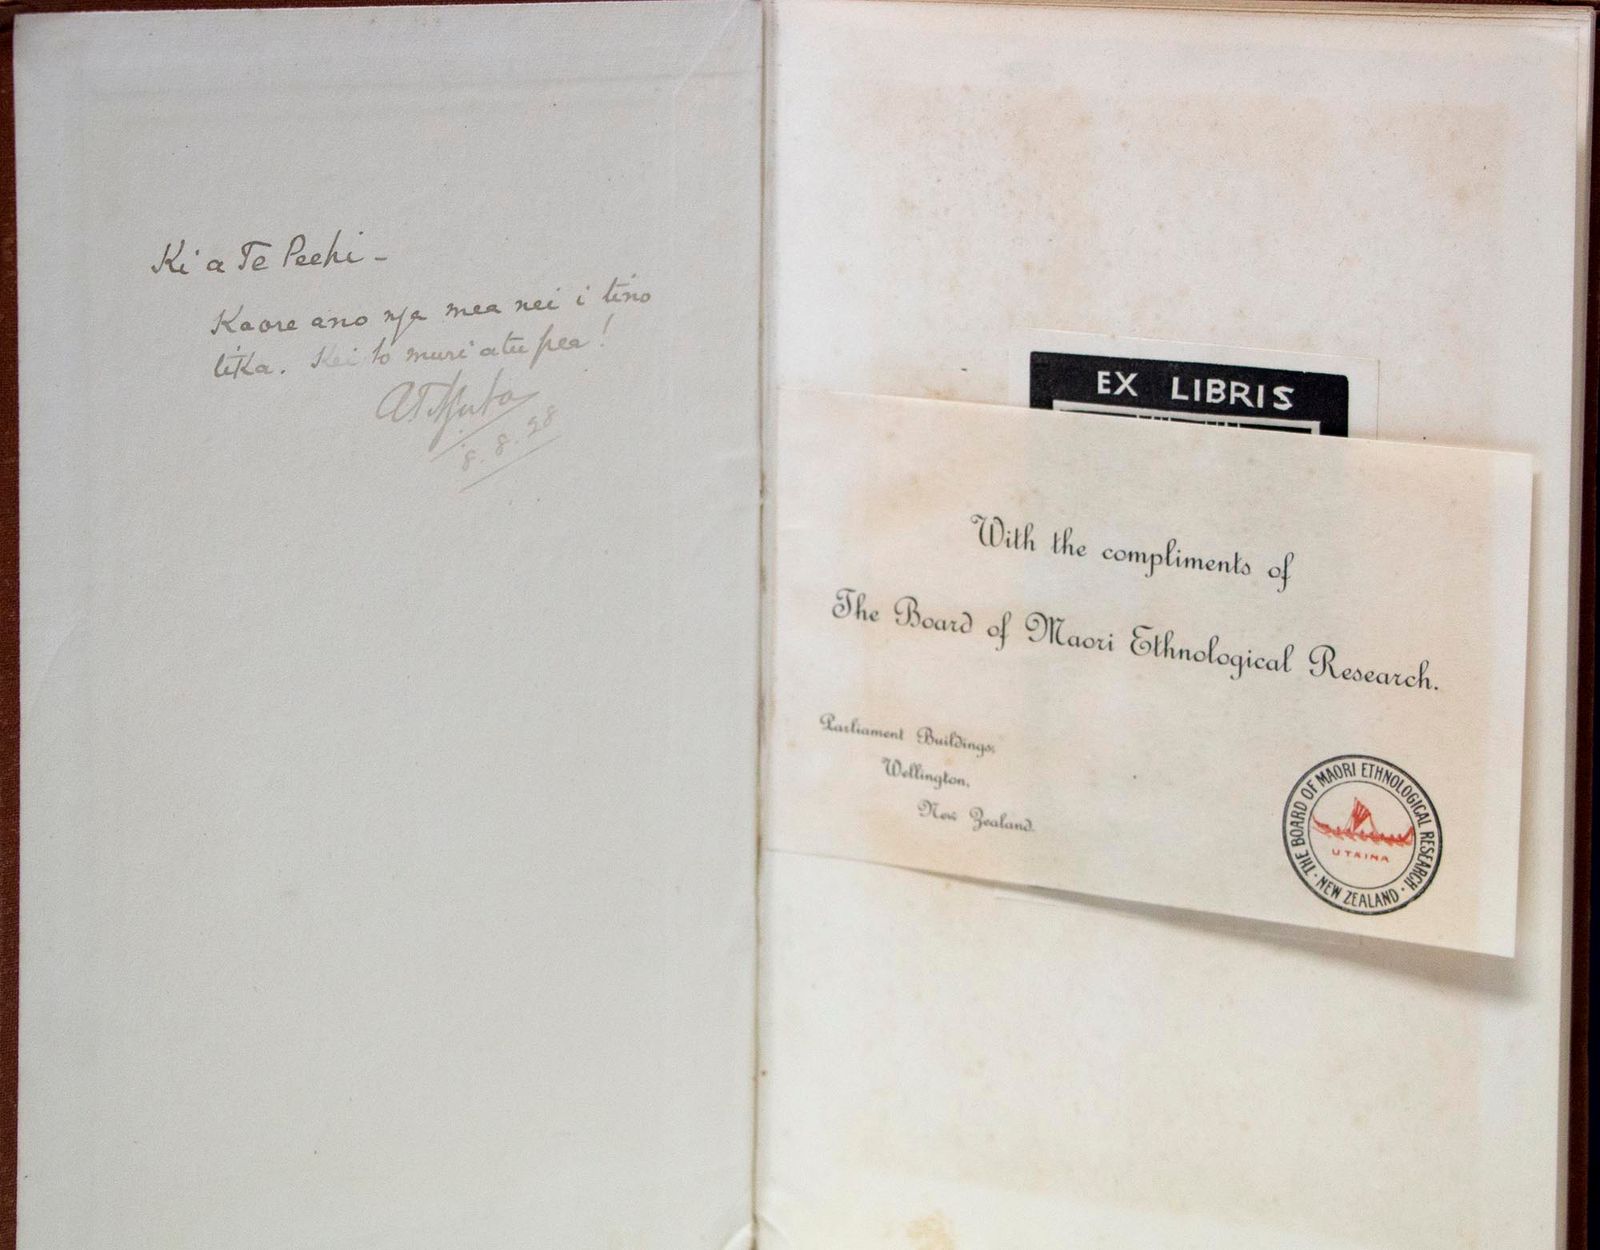 Ki a Te Peehi -
Kaore ano nga mea nei i tino
tika. Kei to muri atu pea!
8.8.28
EX LIBRIS
With the compliments of
The Board of Maori Ethnological Research.
Parliament Buildings,
Wellington,
New Zealand.
THE BOARD OF MAORI ETHNOLOGICAL RESEARCH
· NEW ZEALAND ·
UTAINA